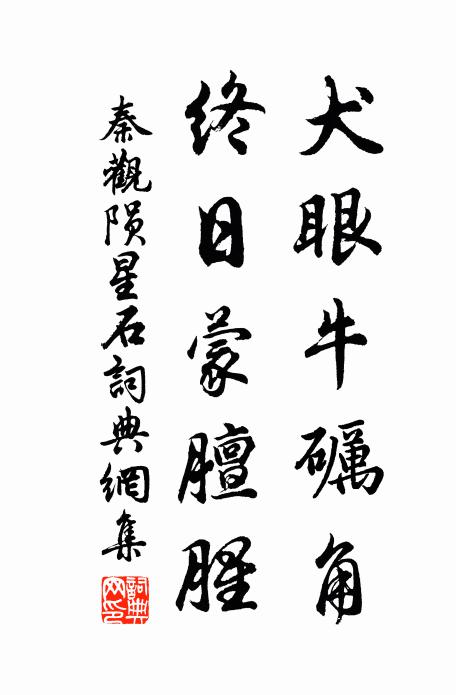 犬眼牛礪角
終日蒙膻腥
秦觀陨星石詞典網集
詞典网印